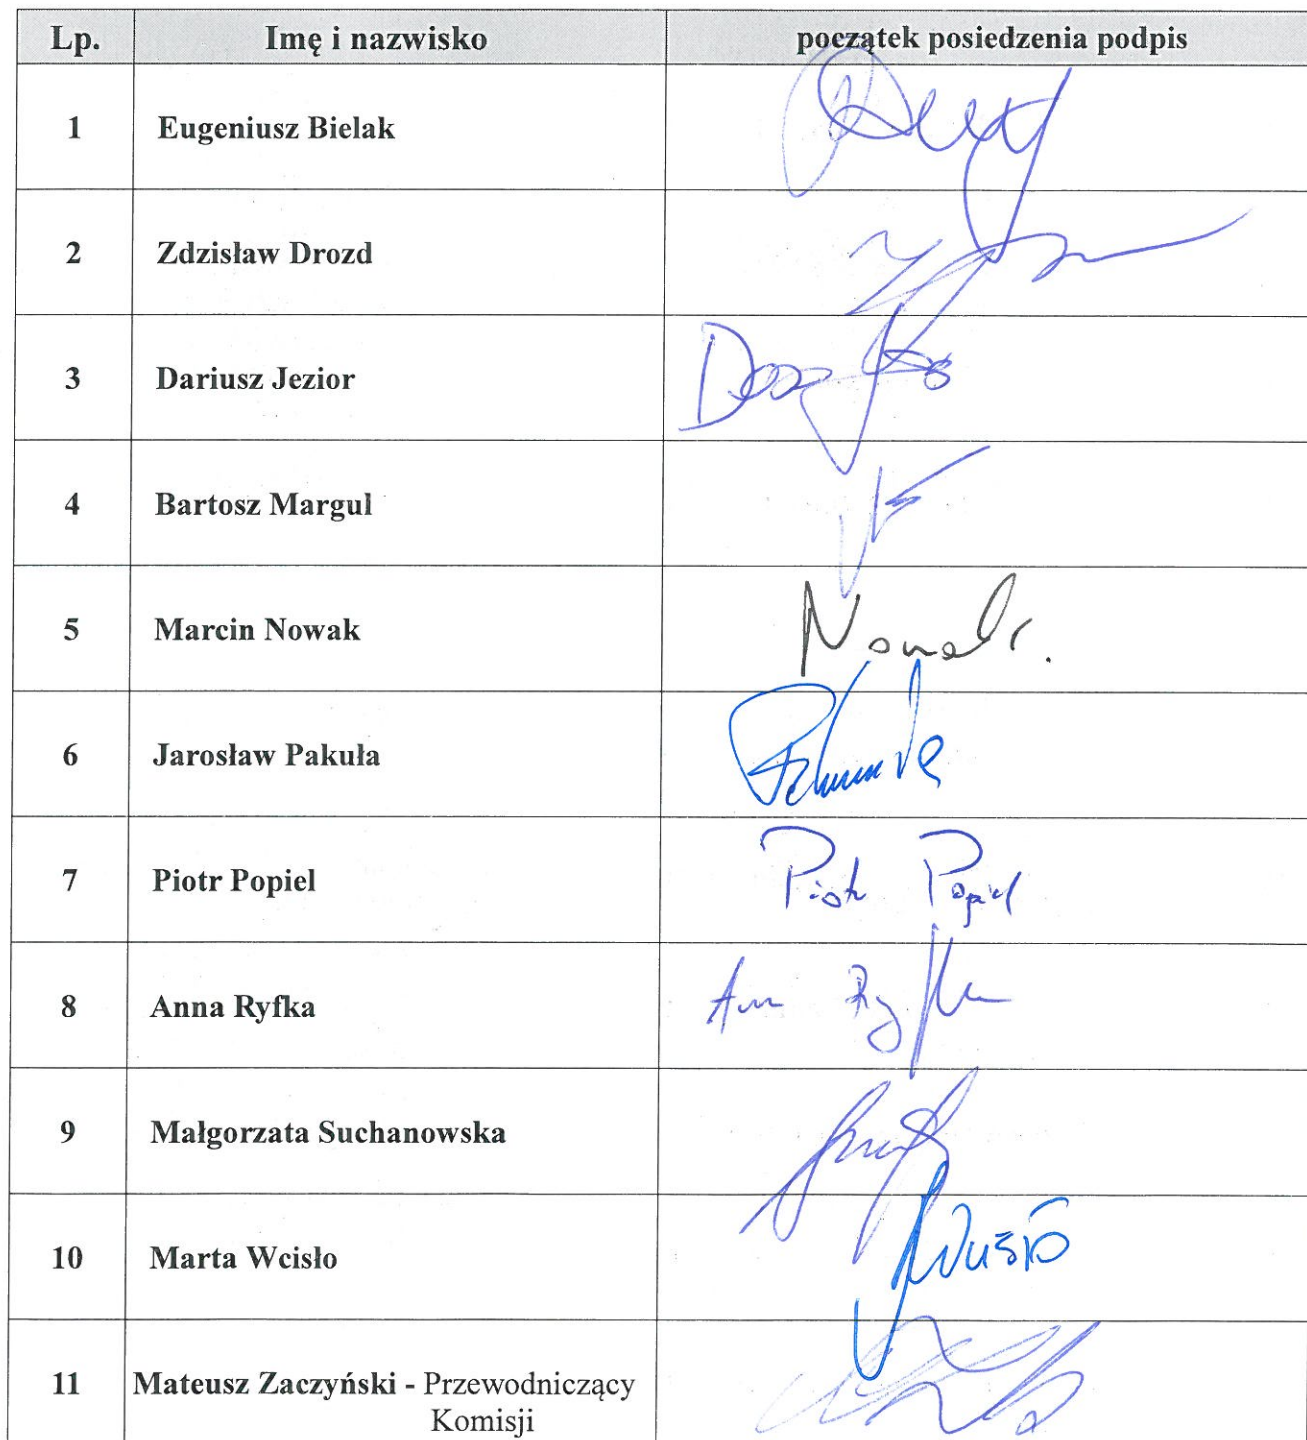 Lp. Imę i nazwisko początek posiedzenia podpis
1 Eugeniusz Bielak
2 Zdzisław Drozd
3 Dariusz Jezior
4 Bartosz Margul
5 Marcin Nowak Nowak.
6 Jarosław Pakuła
7 Piotr Popiel Piotr Popiel
8 Anna Ryfka
9 Małgorzata Suchanowska
10 Marta Wcisło
11 Mateusz Zaczyński - Przewodniczący
Komisji